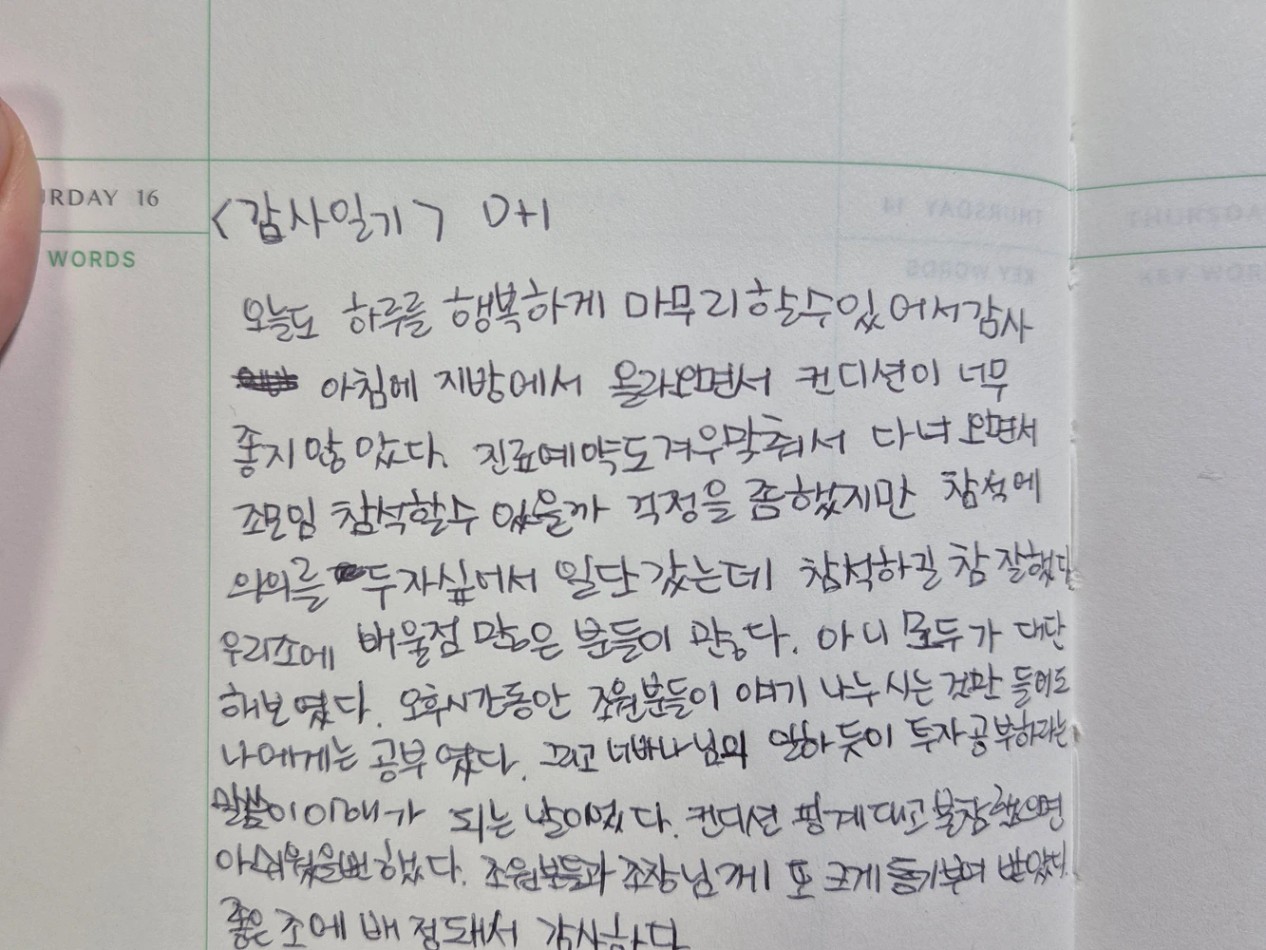 URDAY 16
WORDS
<감사일기> D+1
오늘도 하루를 행복하게 마무리할수있어서감사
아침에 지방에서 올라오면서 컨디션이 너무
좋지않았다. 진료예약도겨우맞춰서 다녀오면서
조모임 참석할수 있을까 걱정을 좀했지만 참석에
의의를 두자싶어서 일단갔는데 참석하길 참 잘했다
우리조에 배울점 많은 분들이 많다. 아니 모두가 대단
해보였다. 오후시간동안 조원분들이 얘기 나누시는것만 들어도
나에게는 공부였다. 그리고 너바나님의 일하듯이 투자공부하라는
말씀이이해가 되는 날이었다. 컨디션 핑계대고 불참했으면
아쉬웠을뻔했다. 조원분들과 조장님께 또 크게 동기부여 받았다.
좋은 조에 배정돼서 감사하다
THURSDAY 14
KEY WORDS